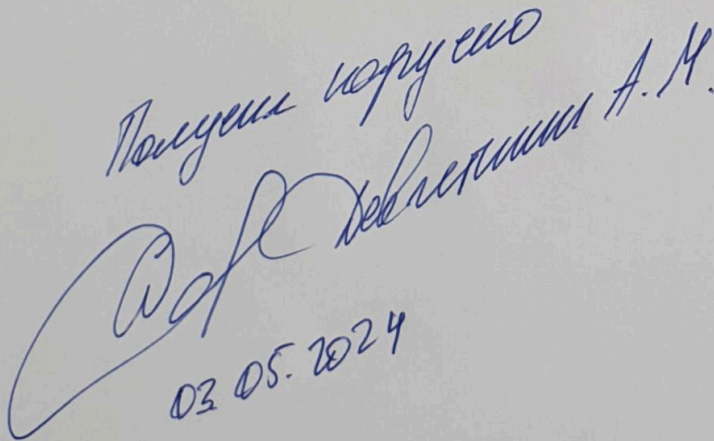 Получил наручно
Девлетшин А. М.
03.05.2024